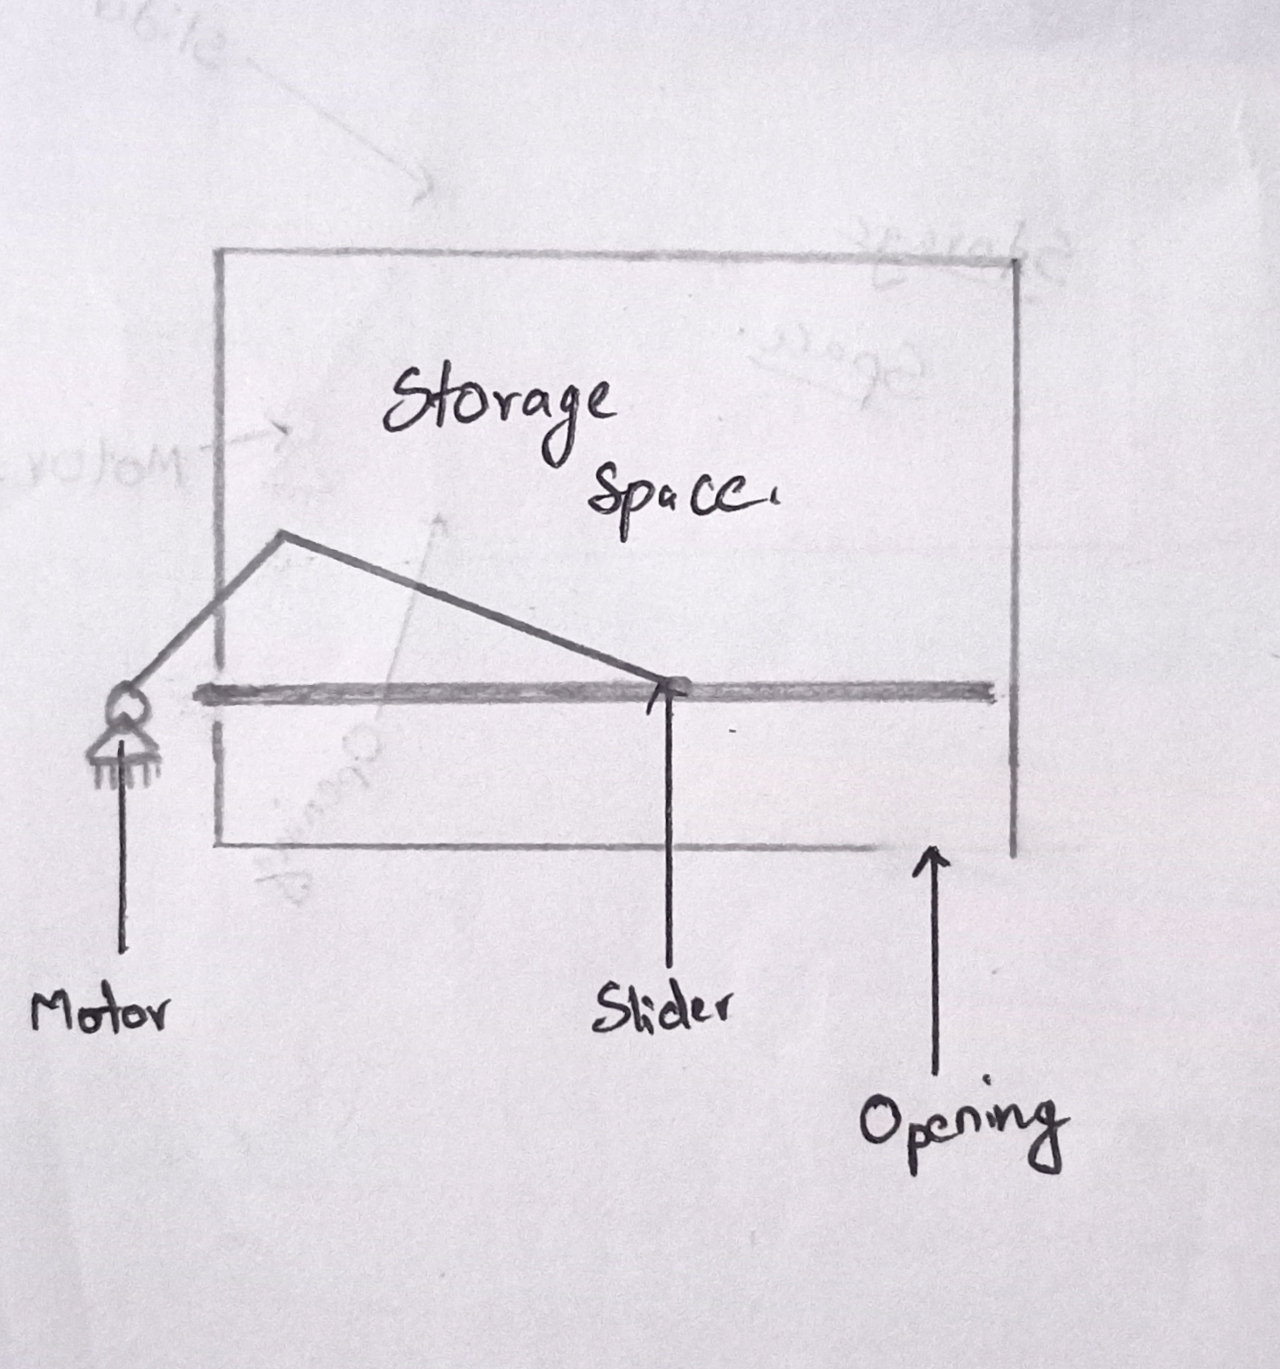 Storage
Space.
Motor
Slider
Opening